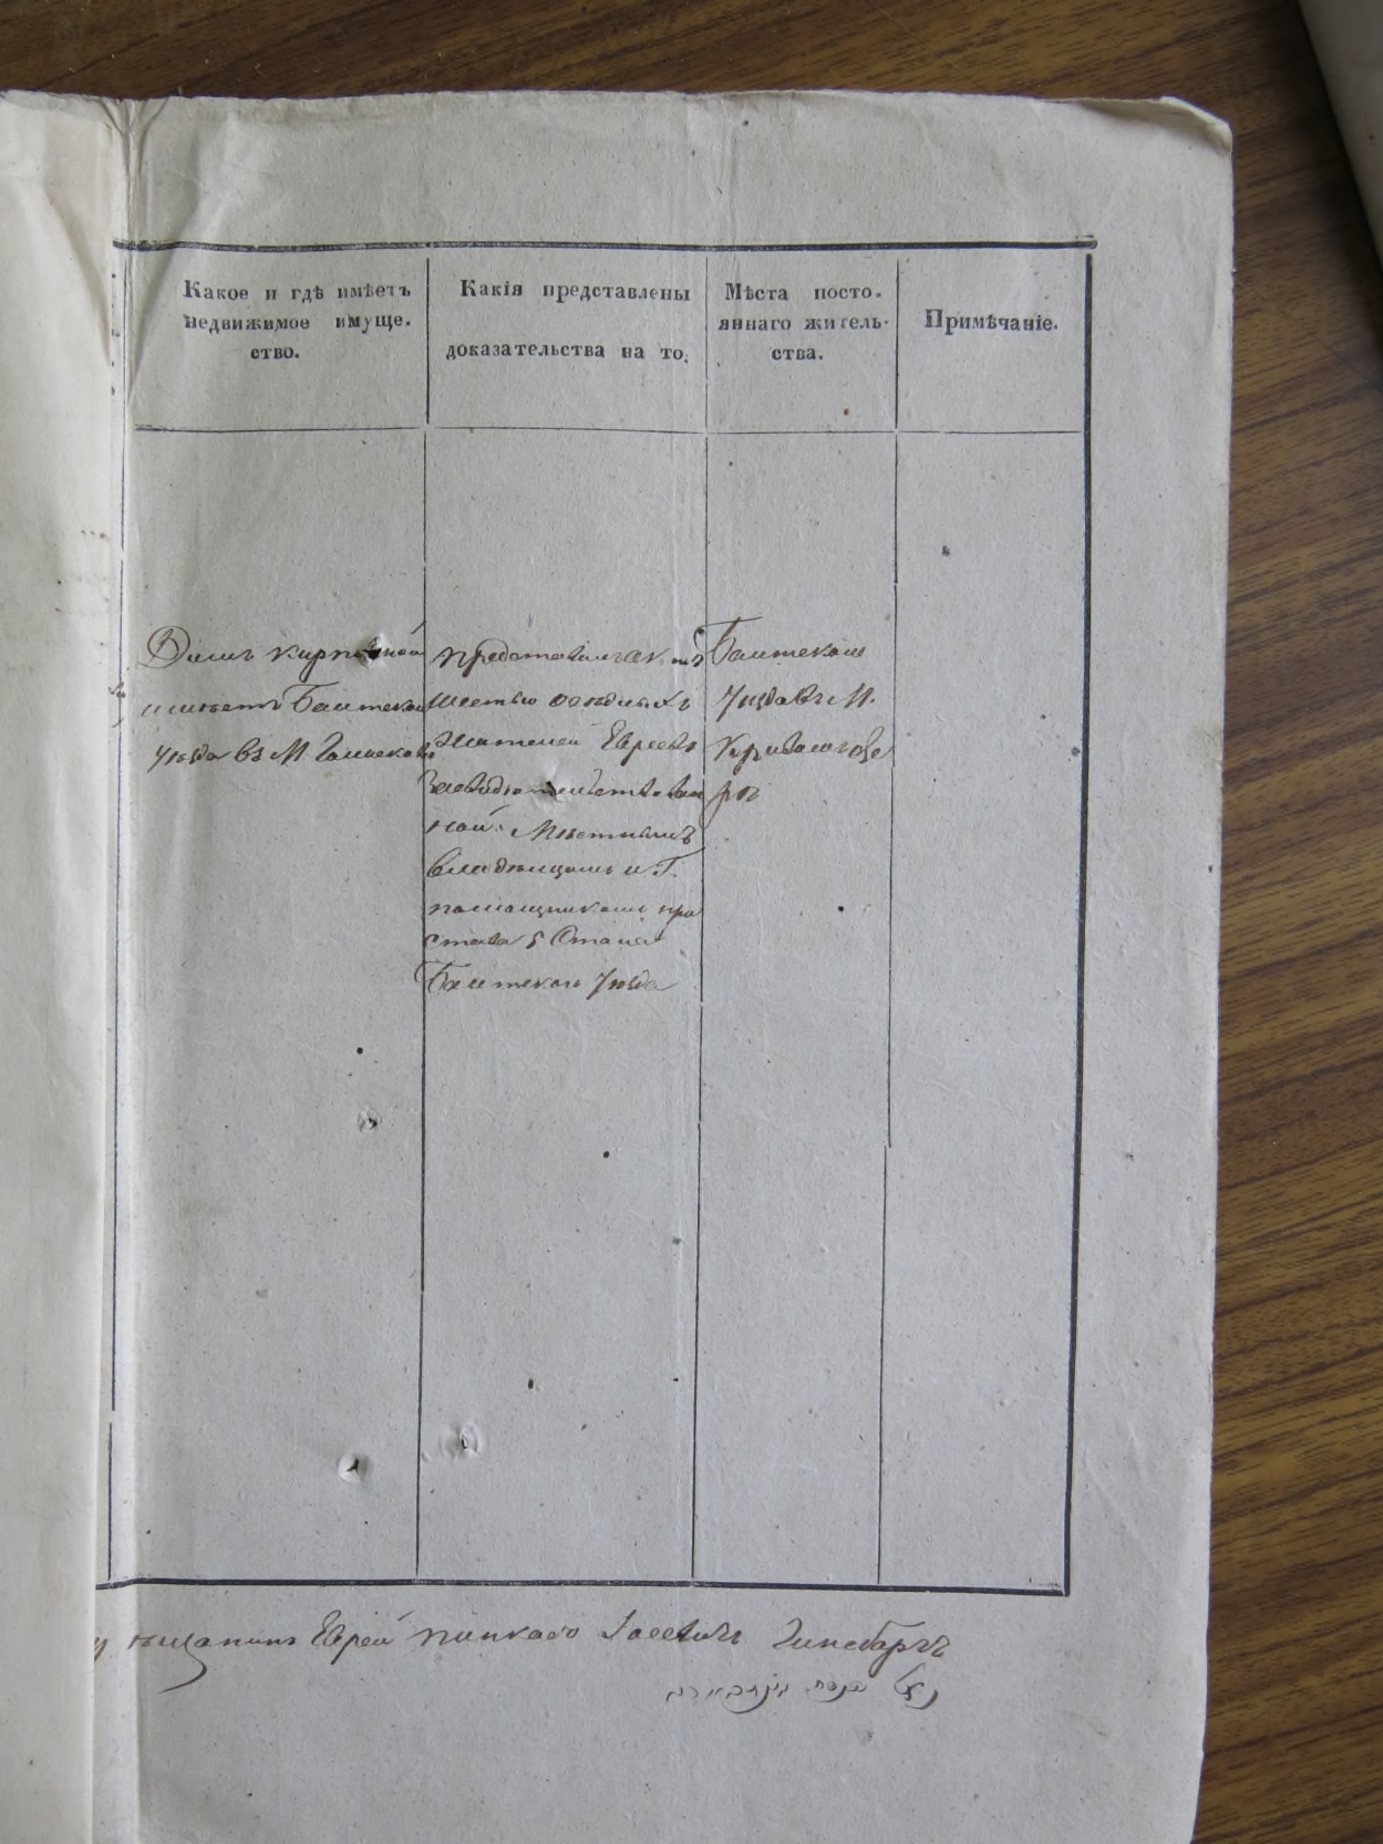 Какое и гдѣ имѣетъ
недвижимое имуще-
ство.
Какія представлены
доказательства на то.
Мѣста посто-
яннаго житель-
ства.
Примѣчаніе.
Домъ кирпичной
имѣетъ Балтском
уѣзда въ М
шестью осѣдлыхъ
жителей Евреевъ
засвидетельствован
ной Мѣстнымъ
владѣльцомъ и Г.
помощникомъ при
става 5 Стана
Балтского Уѣзда
Балтском
Уѣзда въ М.
Кривомъ озе
рѣ
Еврей Пинкасъ Гинсбаргъ